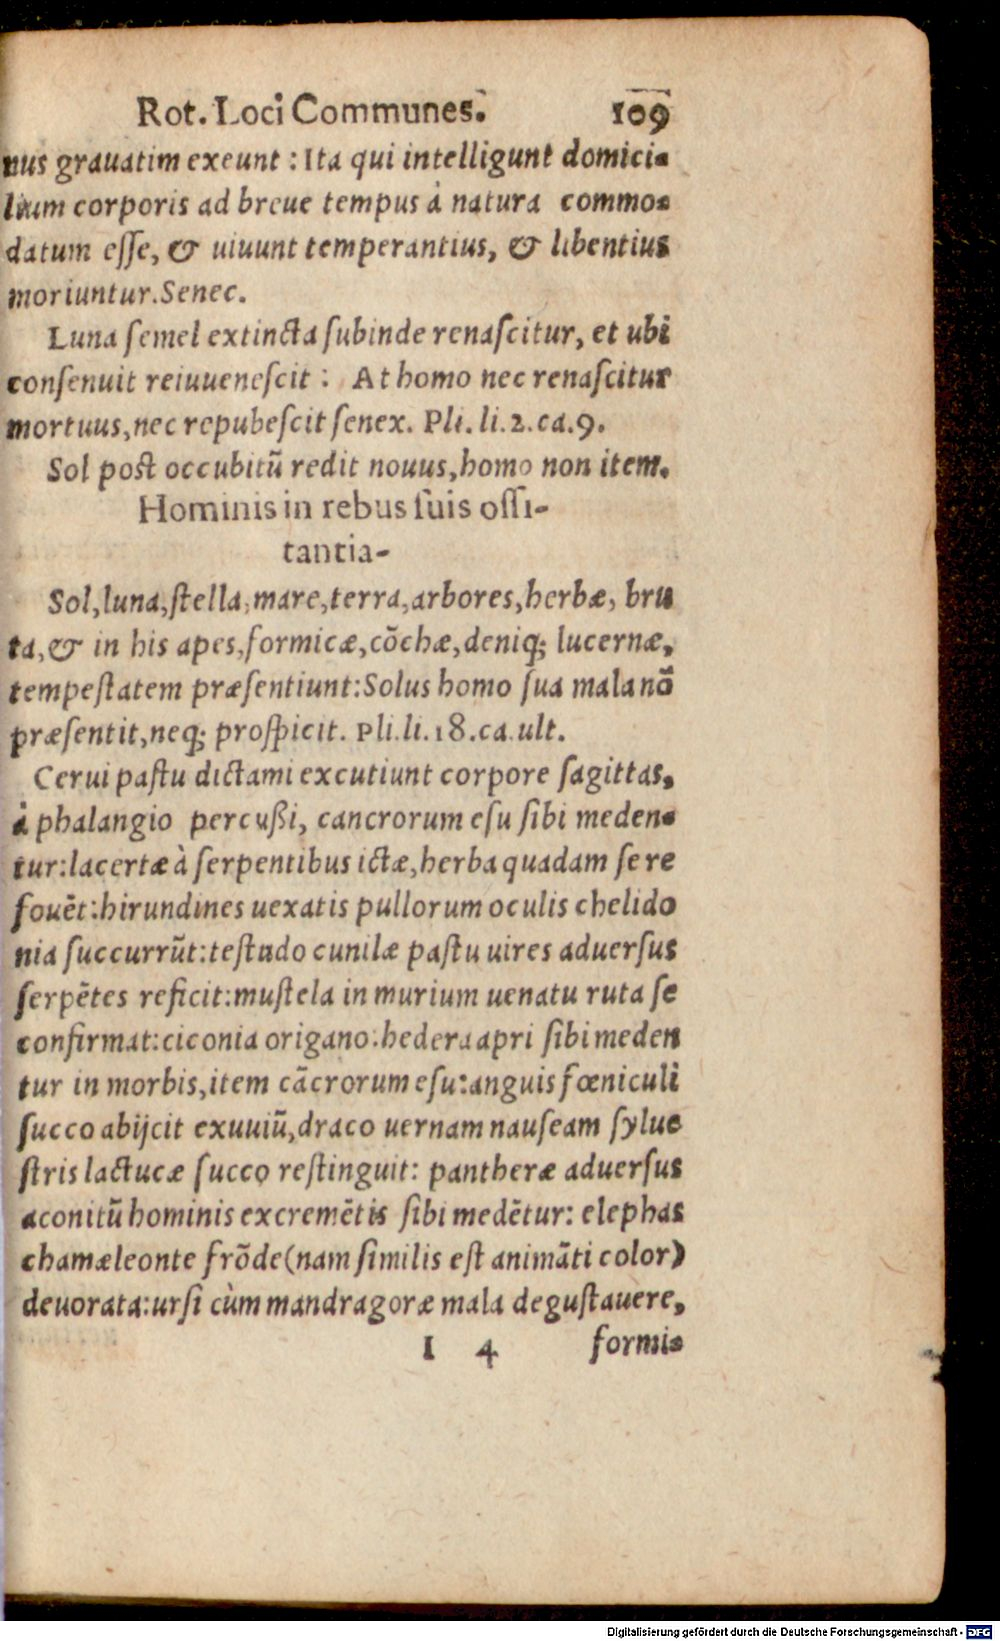 Rot. Loci Communes. 109
nus grauatim exeunt : Ita qui intelligunt domici-
lium corporis ad breue tempus à natura commo-
datum eſſe, & uiuunt temperantius, & libentius
moriuntur. Senec.
Luna ſemel extincta ſubinde renaſcitur, et ubi
conſenuit reiuueneſcit : At homo nec renaſcitur
mortuus, nec repubeſcit ſenex. Pli. li. 2. ca. 9.
Sol poſt occubitū redit nouus, homo non item.
Hominis in rebus ſuis oſſi-
tantia-
Sol, luna, ſtella, mare, terra, arbores, herbæ, bru
ta, & in his apes, formicæ, cōchæ, deniq; lucernæ,
tempeſtatem præſentiunt: Solus homo ſua mala nō
præſentit, neq; proſpicit. Pli. li. 18. ca. ult.
Cerui paſtu dictami excutiunt corpore ſagittas,
à phalangio percußi, cancrorum eſu ſibi meden-
tur: lacertæ à ſerpentibus ictæ, herba quadam ſe re
fouēt: hirundines uexatis pullorum oculis chelido
nia ſuccurrūt: teſtudo cunilæ paſtu uires aduerſus
ſerpētes reficit: muſtela in murium uenatu ruta ſe
confirmat: ciconia origano: hedera apri ſibi meden
tur in morbis, item cācrorum eſu: anguis fœniculi
ſucco abijcit exuuiū, draco uernam nauſeam ſylue
ſtris lactucæ ſucco reſtinguit: pantheræ aduerſus
aconitū hominis excremētis ſibi medētur: elephas
chamæleonte frōde (nam ſimilis eſt animāti color)
deuorata: urſi cùm mandragoræ mala deguſtauere,
I 4 formi-
Digitalisierung gefördert durch die Deutsche Forschungsgemeinschaft - DFG